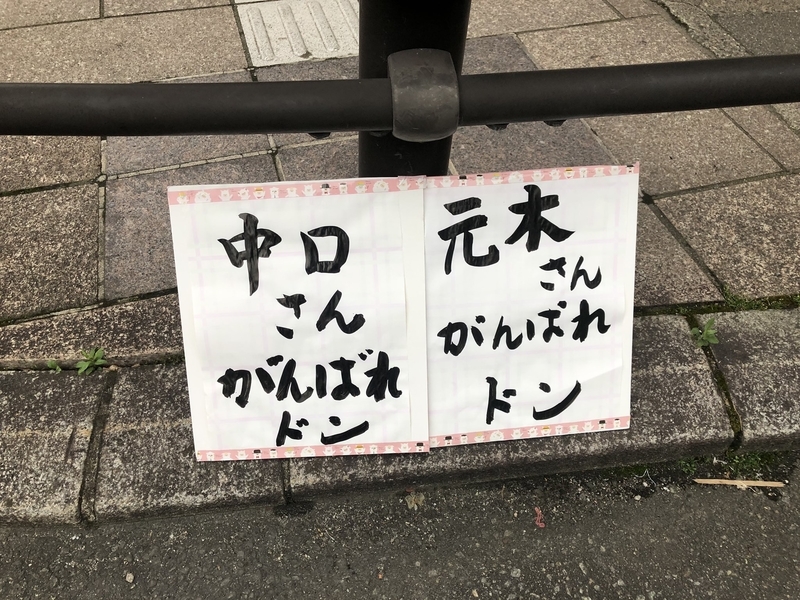 中口
さん
がんばれ
ドン
元木
さん
がんばれ
ドン